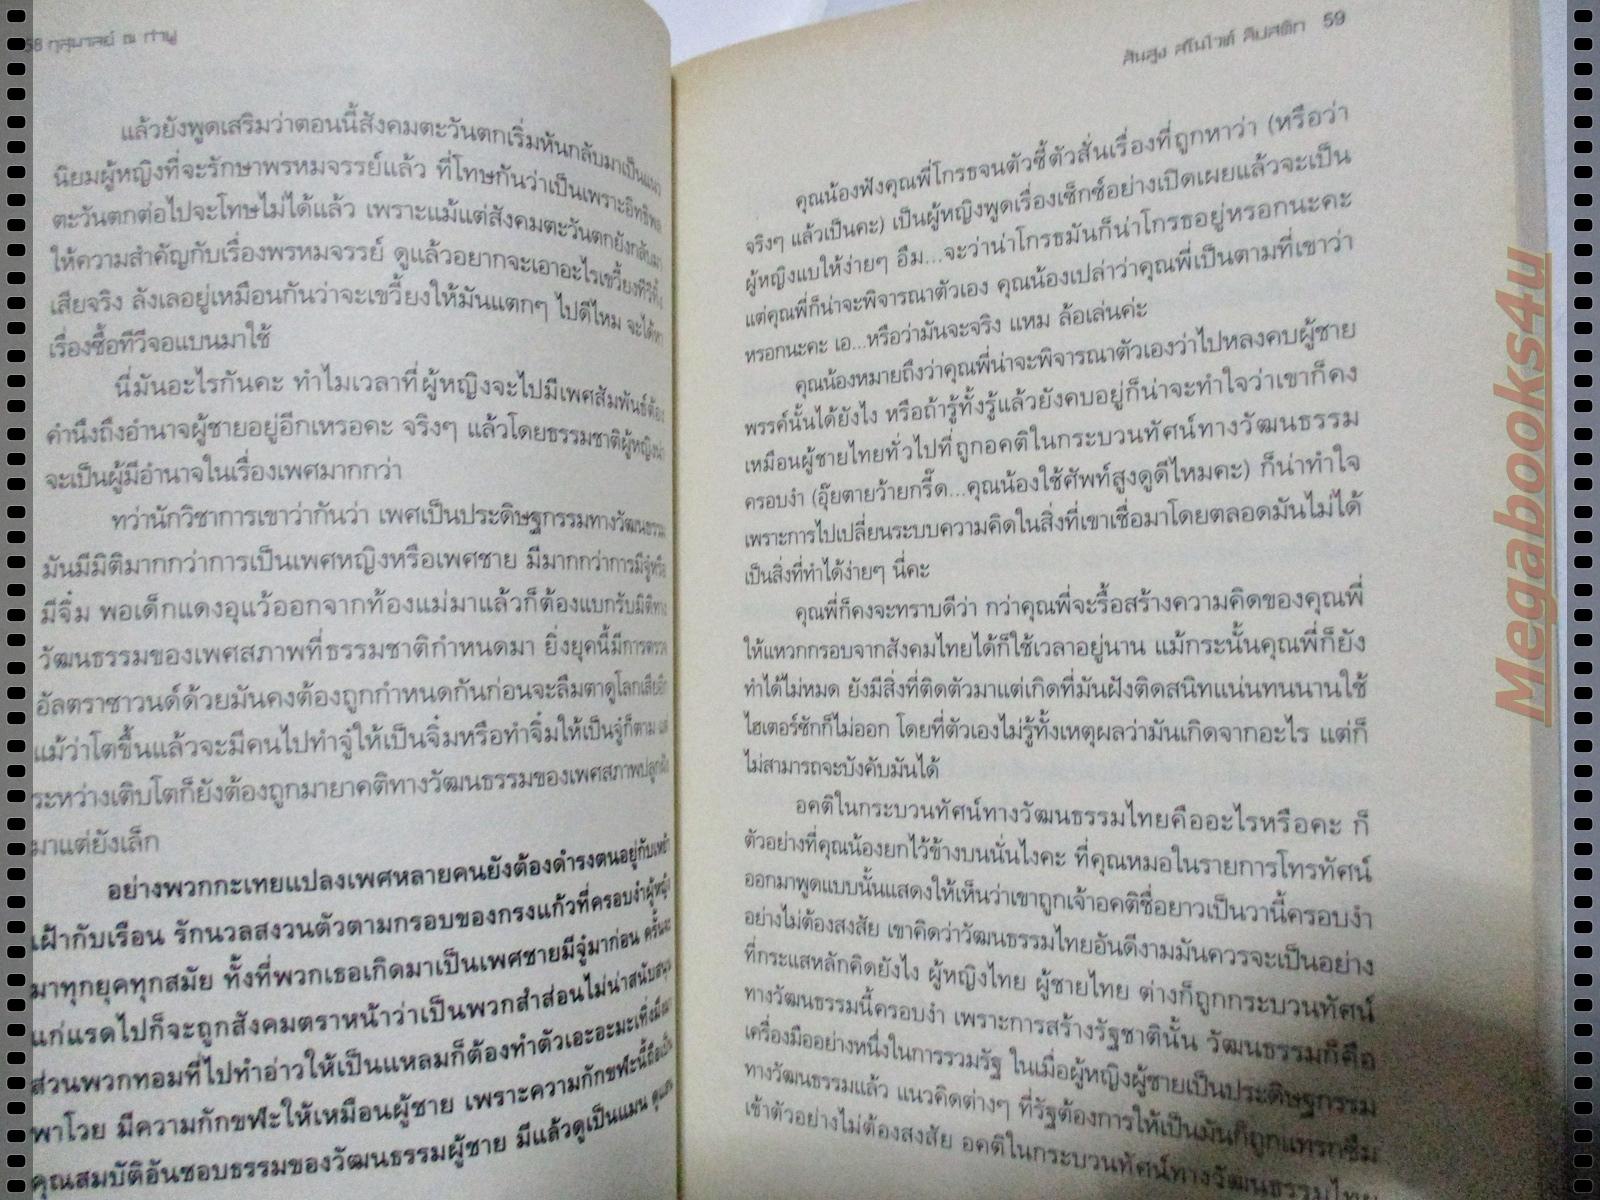 58 กุสุมาลย์ ณ กำพู
แล้วยังพูดเสริมว่าตอนนี้สังคมตะวันตกเริ่มหันกลับมาเป็นแนว
นิยมผู้หญิงที่จะรักษาพรหมจรรย์แล้ว ที่โทษกันว่าเป็นเพราะอิทธิพล
ตะวันตกต่อไปจะโทษไม่ได้แล้ว เพราะแม้แต่สังคมตะวันตกยังกลับมา
ให้ความสำคัญกับเรื่องพรหมจรรย์ ดูแล้วอยากจะเอาอะไรเขวี้ยงทีวีทิ้ง
เสียจริง ลังเลอยู่เหมือนกันว่าจะเขวี้ยงให้มันแตกๆ ไปดีไหม จะได้หา
เรื่องซื้อทีวีจอแบนมาใช้
นี่มันอะไรกันคะ ทำไมเวลาที่ผู้หญิงจะไปมีเพศสัมพันธ์ต้อง
คำนึงถึงอำนาจผู้ชายอยู่อีกเหรอคะ จริงๆ แล้วโดยธรรมชาติผู้หญิงน่า
จะเป็นผู้มีอำนาจในเรื่องเพศมากกว่า
ทว่านักวิชาการเขาว่ากันว่า เพศเป็นประดิษฐกรรมทางวัฒนธรรม
มันมีมิติมากกว่าการเป็นเพศหญิงหรือเพศชาย มีมากกว่าการมีจู๋หรือ
มีจิ๋ม พอเด็กแดงอุแว้ออกจากท้องแม่มาแล้วก็ต้องแบกรับมิติทาง
วัฒนธรรมของเพศสภาพที่ธรรมชาติกำหนดมา ยิ่งยุคนี้มีการตรวจ
อัลตราซาวนด์ด้วยมันคงต้องถูกกำหนดกันก่อนจะลืมตาดูโลกเสียอีก
แม้ว่าโตขึ้นแล้วจะมีคนไปทำจู๋ให้เป็นจิ๋มหรือทำจิ๋มให้เป็นจู๋ก็ตาม แต่
ระหว่างเติบโตก็ยังต้องถูกมายาคติทางวัฒนธรรมของเพศสภาพปลูกฝัง
มาแต่ยังเล็ก
อย่างพวกกะเทยแปลงเพศหลายคนยังต้องดำรงตนอยู่กับเหย้า
เฝ้ากับเรือน รักนวลสงวนตัวตามกรอบของกรงแก้วที่ครอบงำผู้หญิง
มาทุกยุคทุกสมัย ทั้งที่พวกเธอเกิดมาเป็นเพศชายมีจู๋มาก่อน ครั้นจะ
แก่แรดไปก็จะถูกสังคมตราหน้าว่าเป็นพวกสำส่อนไม่น่าสนับสนุน
ส่วนพวกทอมที่ไปทำอ่าวให้เป็นแหลมก็ต้องทำตัวเอะอะมะเทิ่ง
พาโวย มีความกักขฬะให้เหมือนผู้ชาย เพราะความกักขฬะนี้ถือเป็น
คุณสมบัติอันชอบธรรมของวัฒนธรรมผู้ชาย มีแล้วดูเป็นแมน
ส้นสูง สโนไวต์ ลิปสติก 59
คุณน้องฟังคุณพี่โกรธจนตัวซี้ตัวสั่นเรื่องที่ถูกหาว่า (หรือว่า
จริงๆ แล้วเป็นคะ) เป็นผู้หญิงพูดเรื่องเซ็กซ์อย่างเปิดเผยแล้วจะเป็น
ผู้หญิงแบให้ง่ายๆ อืม...จะว่าน่าโกรธมันก็น่าโกรธอยู่หรอกนะคะ
แต่คุณพี่ก็น่าจะพิจารณาตัวเอง คุณน้องเปล่าว่าคุณพี่เป็นตามที่เขาว่า
หรอกนะคะ เอ...หรือว่ามันจะจริง แหม ล้อเล่นค่ะ
คุณน้องหมายถึงว่าคุณพี่น่าจะพิจารณาตัวเองว่าไปหลงคบผู้ชาย
พรรค์นั้นได้ยังไง หรือถ้ารู้ทั้งรู้แล้วยังคบอยู่ก็น่าจะทำใจว่าเขาก็คง
เหมือนผู้ชายไทยทั่วไปที่ถูกอคติในกระบวนทัศน์ทางวัฒนธรรม
ครอบงำ (อุ๊ยตายว้ายกรี๊ด...คุณน้องใช้ศัพท์สูงดูดีไหมคะ) ก็น่าทำใจ
เพราะการไปเปลี่ยนระบบความคิดในสิ่งที่เขาเชื่อมาโดยตลอดมันไม่ได้
เป็นสิ่งที่ทำได้ง่ายๆ นี่คะ
คุณพี่ก็คงจะทราบดีว่า กว่าคุณพี่จะรื้อสร้างความคิดของคุณพี่
ให้แหวกกรอบจากสังคมไทยได้ก็ใช้เวลาอยู่นาน แม้กระนั้นคุณพี่ก็ยัง
ทำได้ไม่หมด ยังมีสิ่งที่ติดตัวมาแต่เกิดที่มันฝังติดสนิทแน่นทนนานใช้
ไฮเตอร์ซักก็ไม่ออก โดยที่ตัวเองไม่รู้ทั้งเหตุผลว่ามันเกิดจากอะไร แต่ก็
ไม่สามารถจะบังคับมันได้
อคติในกระบวนทัศน์ทางวัฒนธรรมไทยคืออะไรหรือคะ ก็
ตัวอย่างที่คุณน้องยกไว้ข้างบนนั่นไงคะ ที่คุณหมอในรายการโทรทัศน์
ออกมาพูดแบบนั้นแสดงให้เห็นว่าเขาถูกเจ้าอคติชื่อยาวเป็นวานี้ครอบงำ
อย่างไม่ต้องสงสัย เขาคิดว่าวัฒนธรรมไทยอันดีงามมันควรจะเป็นอย่าง
ที่กระแสหลักคิดยังไง ผู้หญิงไทย ผู้ชายไทย ต่างก็ถูกกระบวนทัศน์
ทางวัฒนธรรมนี้ครอบงำ เพราะการสร้างรัฐชาตินั้น วัฒนธรรมก็คือ
เครื่องมืออย่างหนึ่งในการรวมรัฐ ในเมื่อผู้หญิงผู้ชายเป็นประดิษฐกรรม
ทางวัฒนธรรมแล้ว แนวคิดต่างๆ ที่รัฐต้องการให้เป็นมันก็ถูกแทรกซึม
เข้าตัวอย่างไม่ต้องสงสัย อคติในกระบวนทัศน์ทางวัฒนธรรมไทย
Megabooks4u